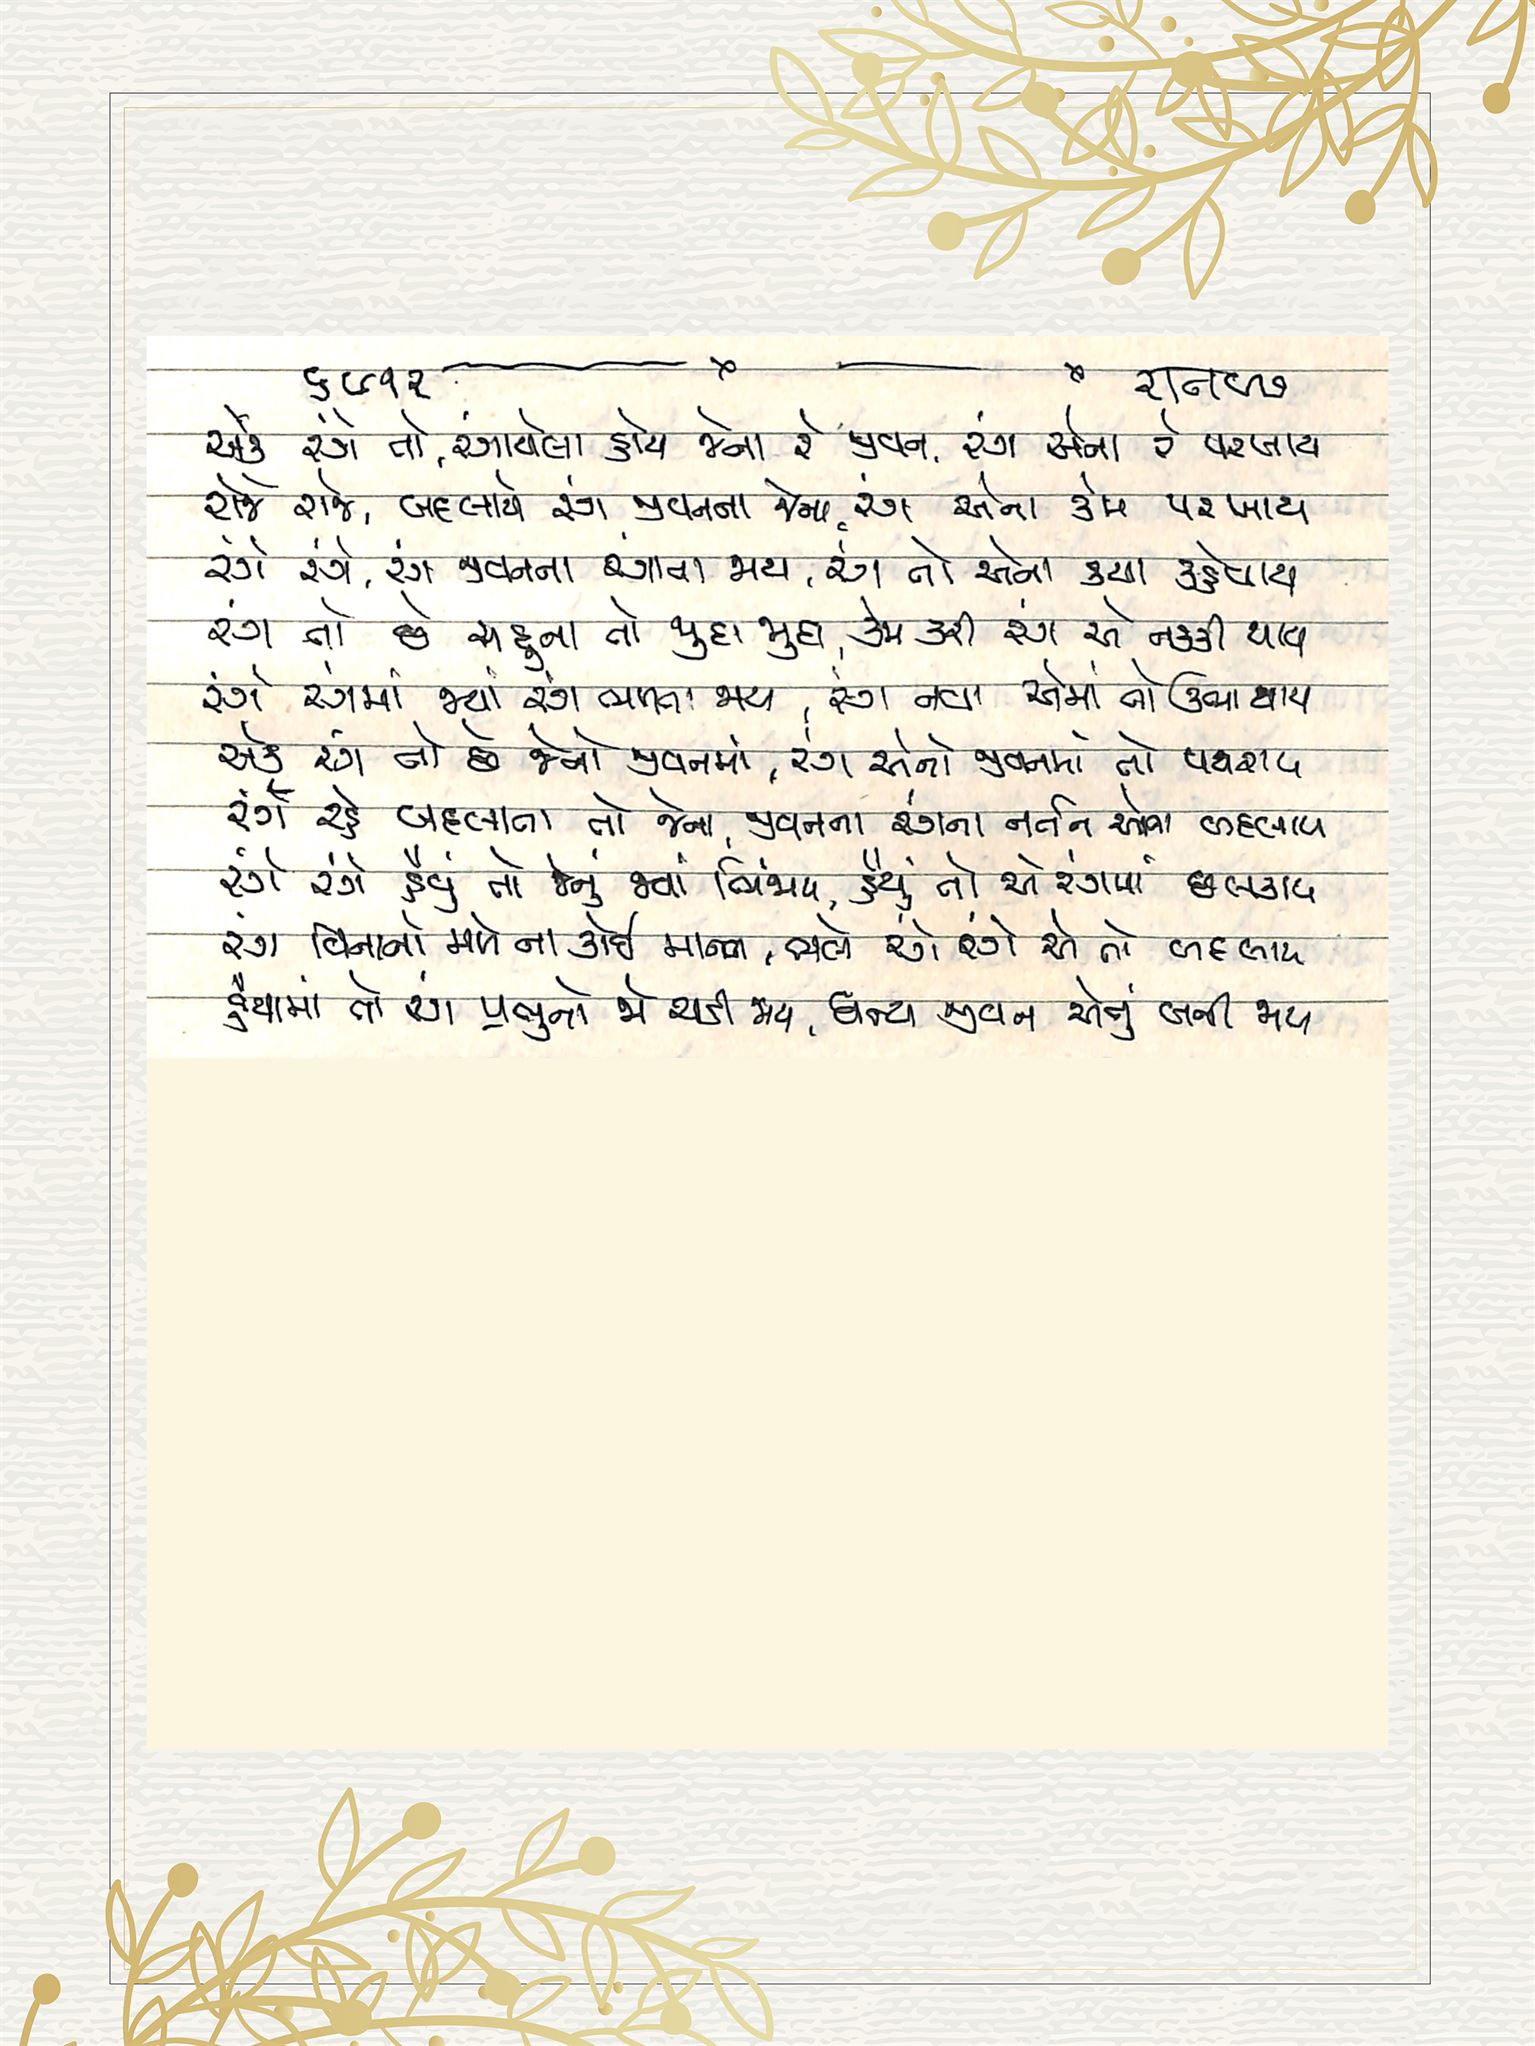 ૬૭૧૨ x x
એકે રંગે તો, રંગાયેલા હોય જેના રે જીવન, રંગ એના રે પરખાય
રોજે રોજે, બદલાયે રંગ જીવનના જેના, રંગ એના કેમ પરખાય
રંગે રંગે, રંગ જીવનના રંગાતા જાય, રંગ તો એના કયા કહેવાય
રંગ તો છે સહુના તો જુદા જુદા, કેમ કરી રંગ એ નક્કી થાય
રંગે રંગમાં જ્યાં રંગ ભળતા જાય, રંગ નવા એમાં તો ઊભા થાય
એક રંગ તો છે જેનો જીવનમાં, રંગ એનો જીવનમાં તો પથરાય
રંગે રહે બદલાતા તો જેના, જીવનના રંગના નર્તન એવા બદલાય
રંગે રંગે હૈયું તો જેનું જ્યાં ભિંજાય, હૈયું તો એ રંગમાં છલકાય
રંગ વિનાનો મળે ના કોઈ માનવ, ભલે રંગે રંગે એ તો બદલાય
હૈયામાં તો રંગ પ્રભુનો જો ચડી જાય, ધન્ય જીવન એનું બની જાય